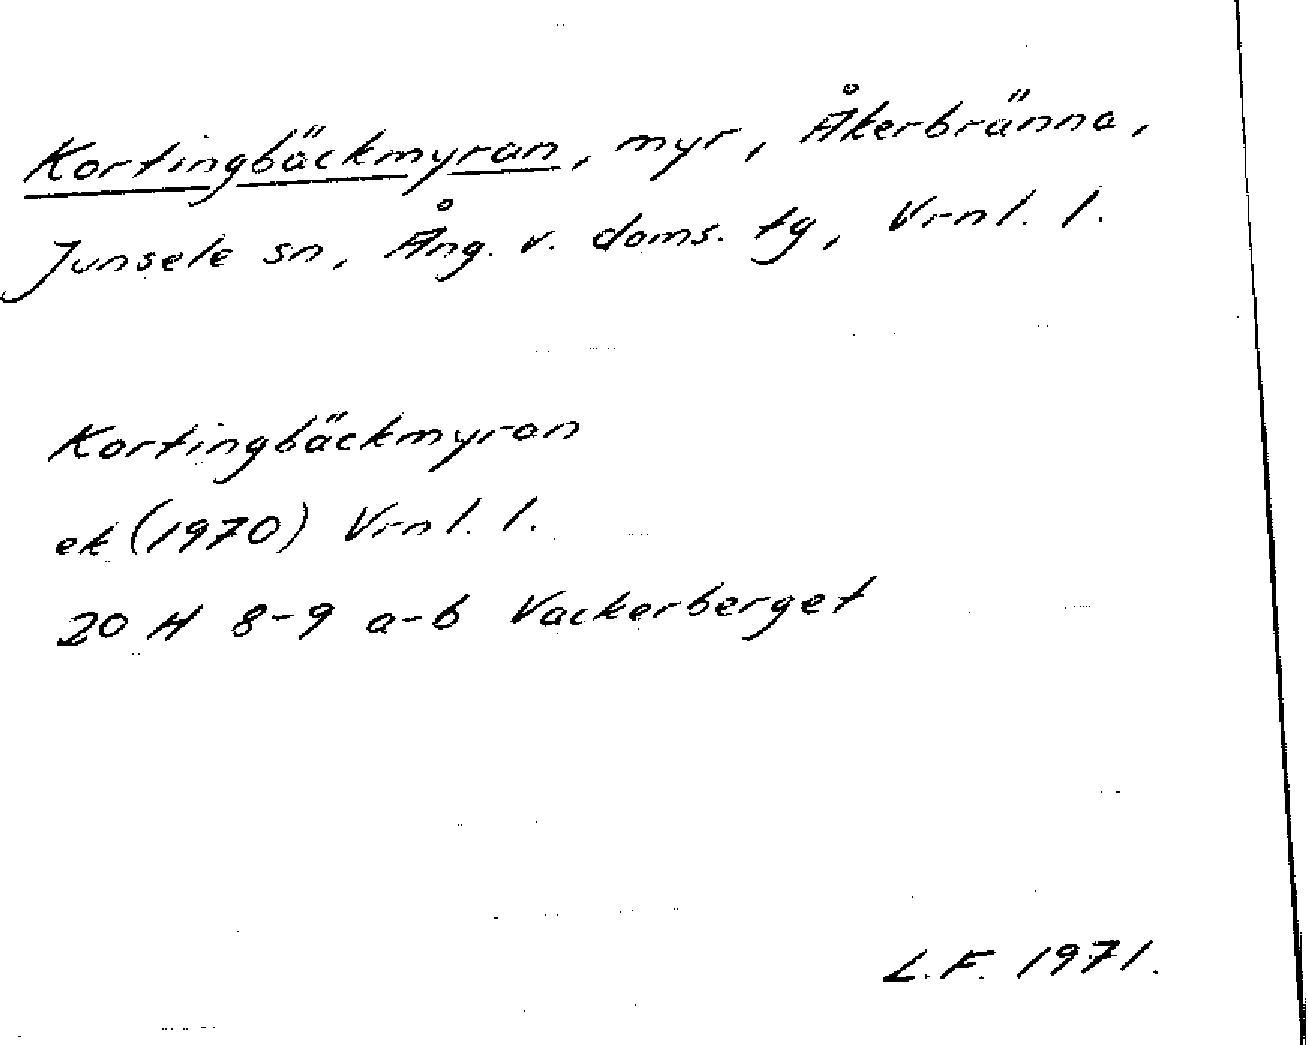 Kortingbäckmyran, myr, Åkerbränna,
Junsele sn, Ång. v. doms. tg, Vrnl. l.
Kortingbäckmyran
ek (1970) Vrnl. l.
20 H 8-9 a-b Vackerberget
L.F. 1971.